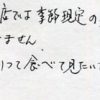 店では季節限定の
ません。
りつて食べて見たいで